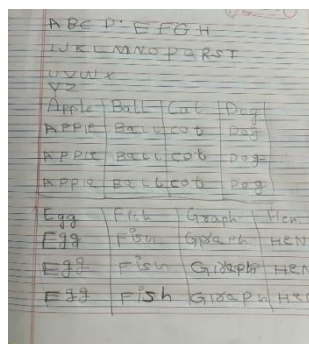 A B C D E F G H
I J K L M N O P Q R S T
U V W X
Y Z
Apple Ball Cat Dog
APPIE Ball cot Dog
APPIE Ball cot Dog
APPIE Ball cot Dog
Egg Fish Graph Hen
Egg Fish Graph HEN
Egg Fish Graph HEN
Egg Fish Graph HEN